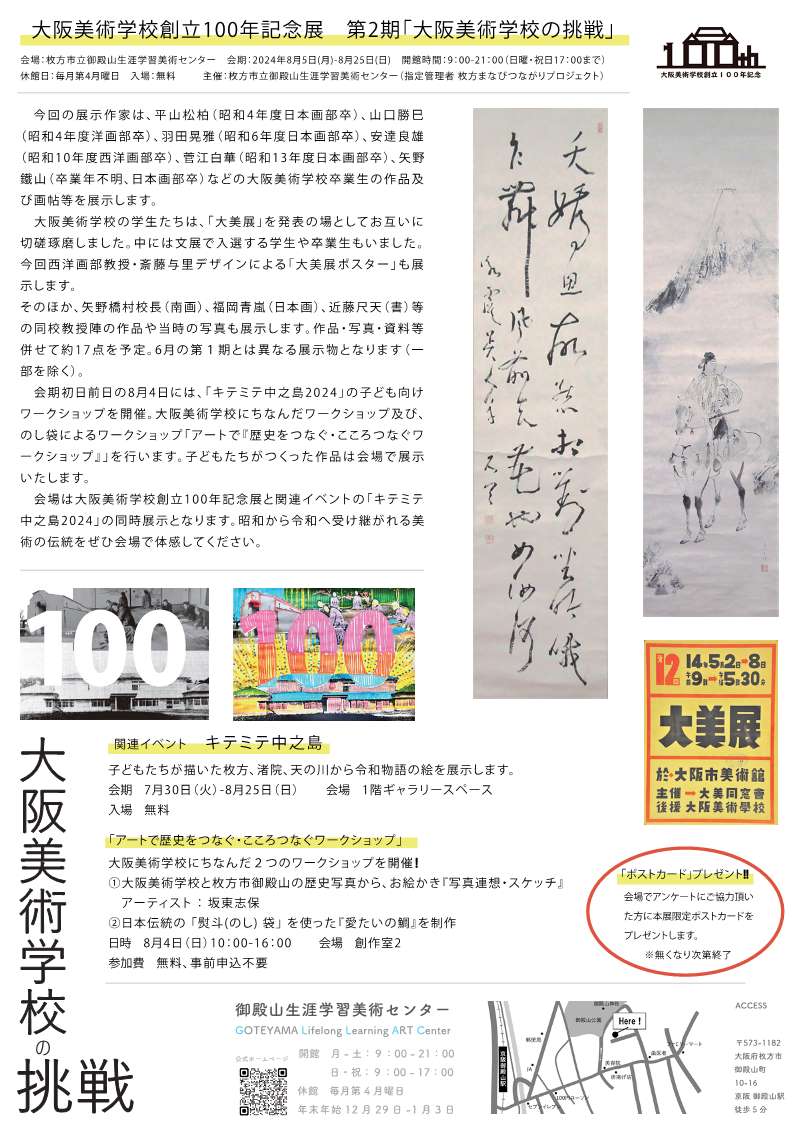 大阪美術学校創立100年記念展　第2期「大阪美術学校の挑戦」
100th
大阪美術学校創立１００年記念
会場：枚方市立御殿山生涯学習美術センター　会期：2024年8月5日(月)-8月25日(日)　開館時間：9:00-21:00（日曜・祝日17:00まで）
休館日：毎月第4月曜日　入場：無料　　　主催：枚方市立御殿山生涯学習美術センター（指定管理者 枚方まなびつながりプロジェクト）
　今回の展示作家は、平山松柏（昭和４年度日本画部卒）、山口勝巳
（昭和4年度洋画部卒）、羽田晃雅（昭和6年度日本画部卒）、安達良雄
（昭和10年度西洋画部卒）、菅江白華（昭和13年度日本画部卒）、矢野
鐵山（卒業年不明、日本画部卒）などの大阪美術学校卒業生の作品及
び画帖等を展示します。
　大阪美術学校の学生たちは、「大美展」を発表の場としてお互いに
切磋琢磨しました。中には文展で入選する学生や卒業生もいました。
今回西洋画部教授・斎藤与里デザインによる「大美展ポスター」も展
示します。
そのほか、矢野橋村校長（南画）、福岡青嵐（日本画）、近藤尺天（書）等
の同校教授陣の作品や当時の写真も展示します。作品・写真・資料等
併せて約17点を予定。6月の第１期とは異なる展示物となります（一
部を除く）。
　会期初日前日の8月4日には、「キテミテ中之島2024」の子ども向け
ワークショップを開催。大阪美術学校にちなんだワークショップ及び、
のし袋によるワークショップ「アートで『歴史をつなぐ・こころつなぐワ
ークショップ』」を行います。子どもたちがつくった作品は会場で展示
いたします。
　会場は大阪美術学校創立100年記念展と関連イベントの「キテミテ
中之島2024」の同時展示となります。昭和から令和へ受け継がれる美
術の伝統をぜひ会場で体感してください。
100
100
第12回
14年5月2日→8日
午前9時→午後5時30分
大美展
於→大阪市美術館
主催→大美同窓會
後援 大阪美術學校
大阪美術学校の挑戦
関連イベント　キテミテ中之島
子どもたちが描いた枚方、渚院、天の川から令和物語の絵を展示します。
会期　7月30日（火）-8月25日（日）　　会場　1階ギャラリースペース
入場　無料
「アートで歴史をつなぐ・こころつなぐワークショップ」
大阪美術学校にちなんだ２つのワークショップを開催！
①大阪美術学校と枚方市御殿山の歴史写真から、お絵かき『写真連想・スケッチ』
　アーティスト：坂東志保
②日本伝統の「熨斗(のし) 袋」を使った『愛たいの鯛』を制作
日時　8月4日（日）10:00-16:00　　会場　創作室2
参加費　無料、事前申込不要
「ポストカード」プレゼント!!
会場でアンケートにご協力頂い
た方に本展限定ポストカードを
プレゼントします。
※無くなり次第終了
御殿山生涯学習美術センター
GOTEYAMA Lifelong Learning ART Center
公式ホームページ
開館　月－土：９：00－21：00
日・祝：９：00－17：00
休館　毎月第４月曜日
年末年始12月29日-1月3日
御殿山神社
御殿山公園
Here !
郵便局
JA
京阪御殿山駅
ファミリーマート
歯医者
美容院
唐揚げ店
100円ローソン
セブンイレブン
ACCESS
〒573-1182
大阪府枚方市
御殿山町
10-16
京阪 御殿山駅
徒歩５分